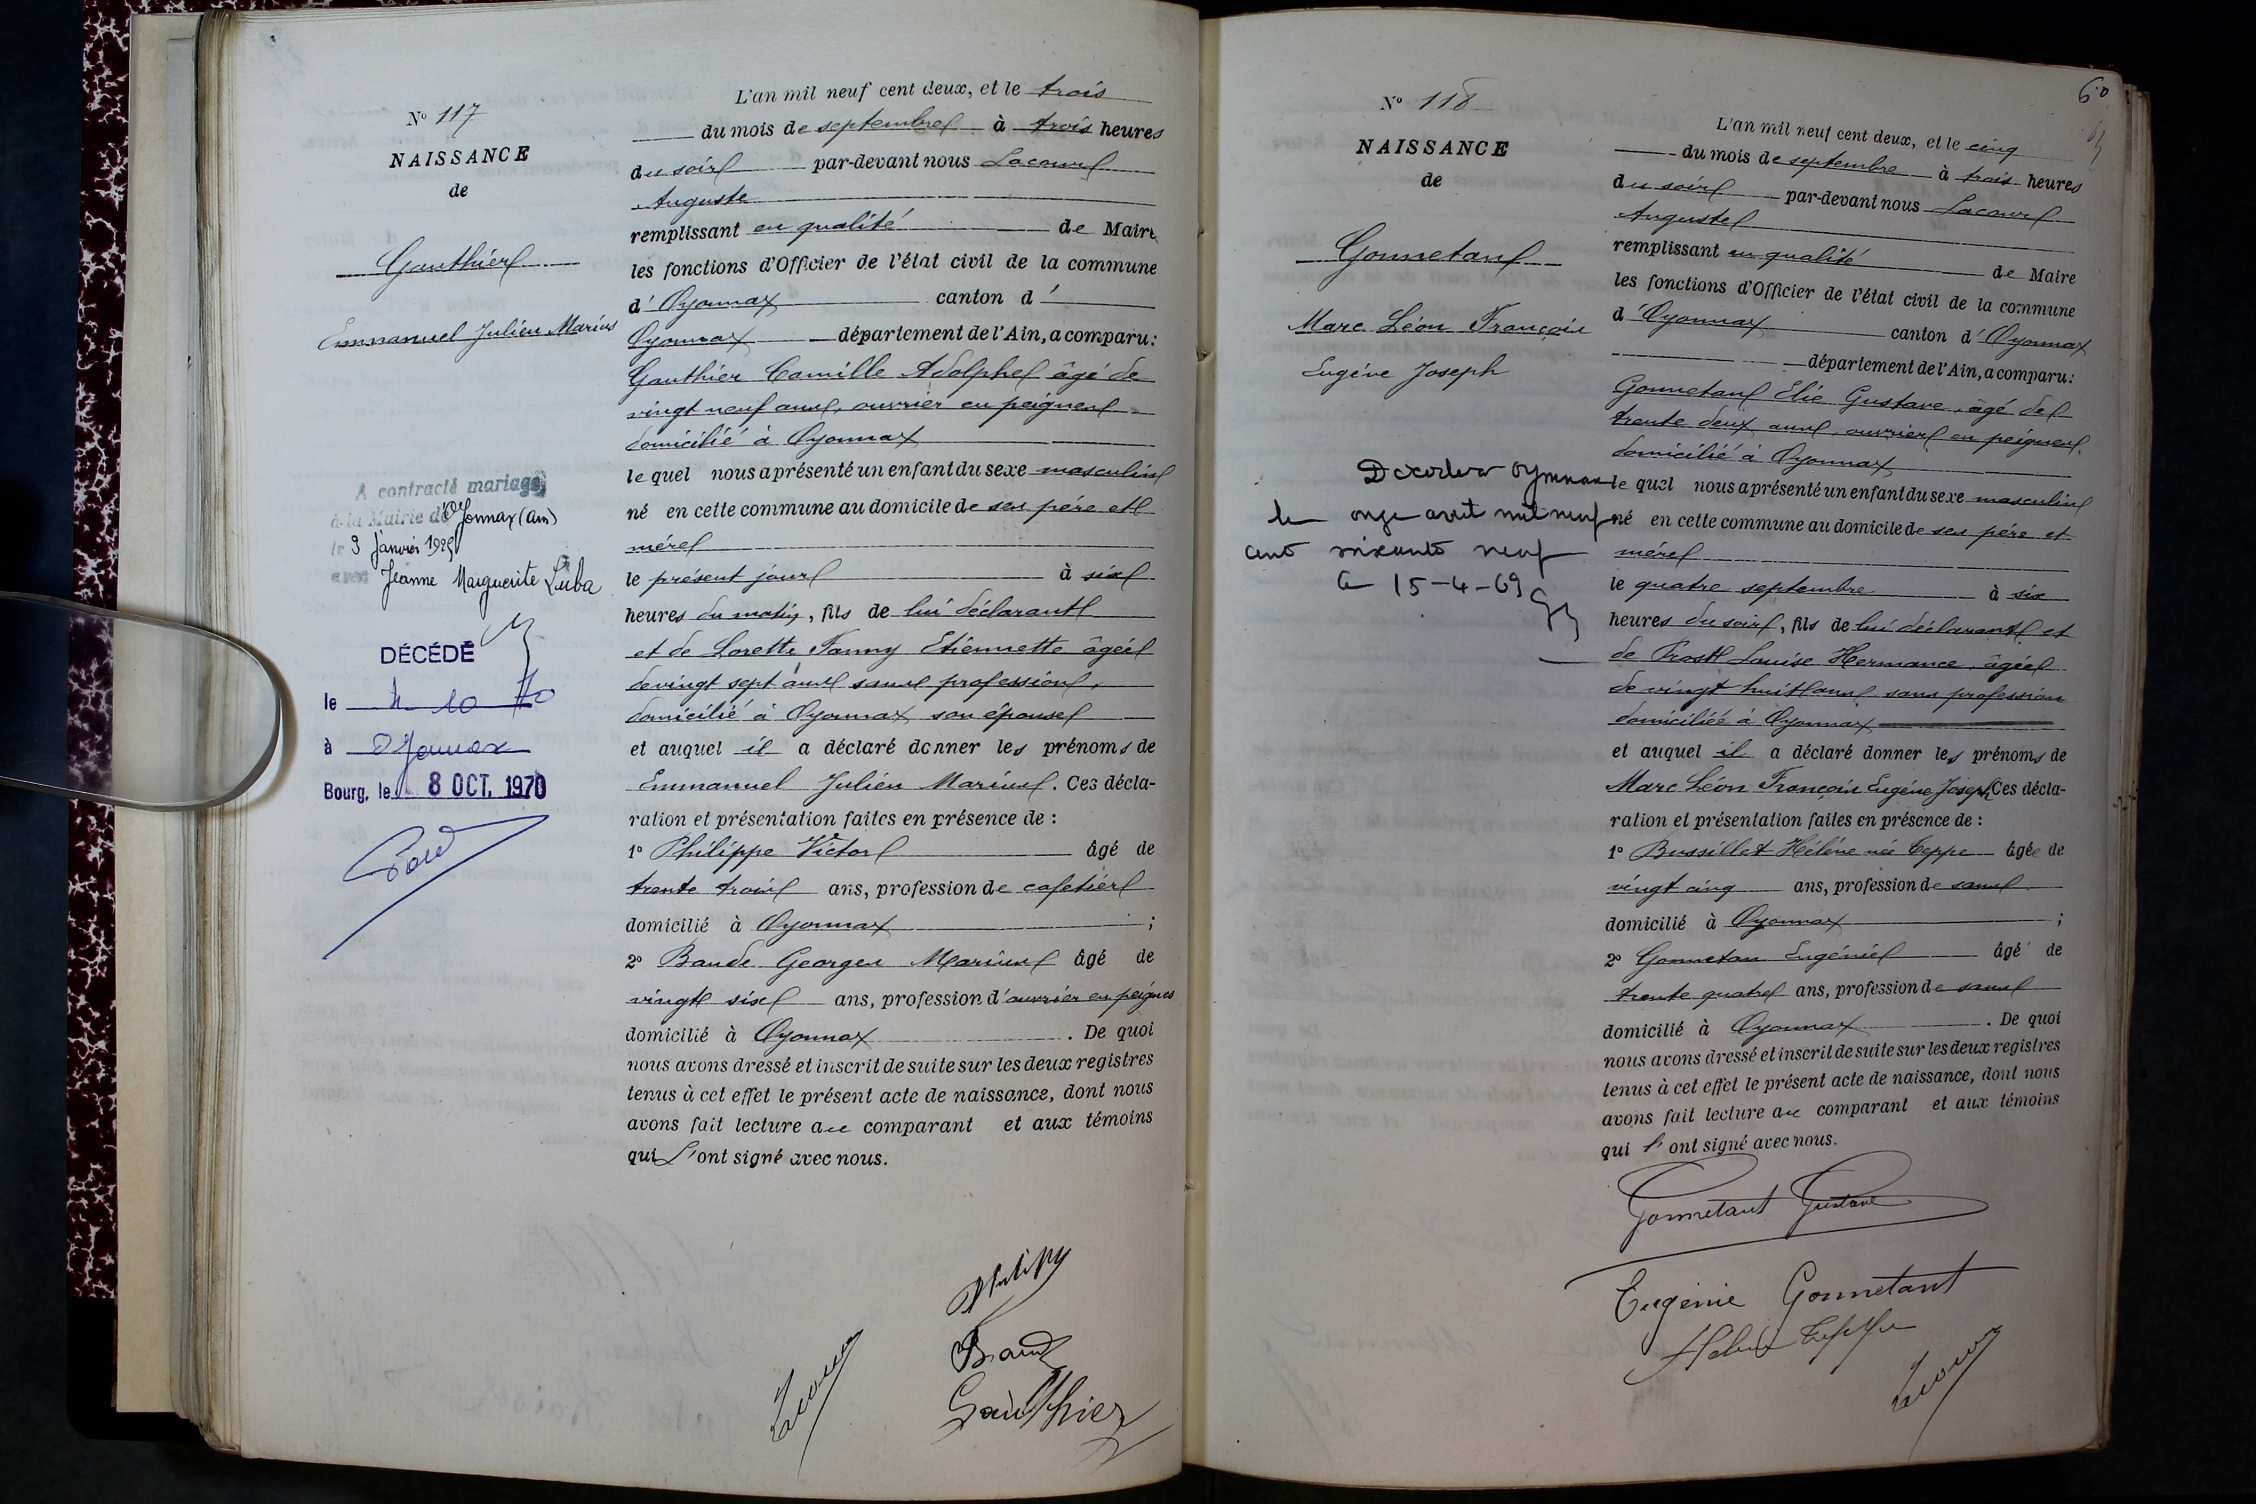 N° 117
NAISSANCE
de
Gauthier
Emmanuel Julien Marius
A contracté mariage
à la Mairie d'Oyonnax (Ain)
le 3 janvier
avec Jeanne Marguerite
DÉCÉDÉ
le 10 70
à Oyonnax
Bourg, le 8 OCT. 1970
L'an mil neuf cent deux, et le trois
du mois de septembre à trois heures
du soir par-devant nous Lacour
Auguste
remplissant en qualité de Maire
les fonctions d'Officier de l'état civil de la commune
d' Oyonnax canton d'
Oyonnax département de l'Ain, a comparu :
Gauthier Camille Adolphe âgé de
vingt neuf ans, ouvrier en peignes
domicilié à Oyonnax
le quel nous a présenté un enfant du sexe masculin
né en cette commune au domicile de ses père et
mère
le présent jour à six
heures du matin, fils de lui déclarant
et de Lorette Fanny Etiennette âgée
de vingt sept ans sans profession,
domicilié à Oyonnax son épouse
et auquel il a déclaré donner les prénoms de
Emmanuel Julien Marius. Ces décla-
ration et présentation faites en présence de :
1° Philippe Victor âgé de
trente trois ans, profession de cafetier
domicilié à Oyonnax ;
2° Baude Georges Marius âgé de
vingt six ans, profession d'ouvrier en peignes
domicilié à Oyonnax . De quoi
nous avons dressé et inscrit de suite sur les deux registres
tenus à cet effet le présent acte de naissance, dont nous
avons fait lecture au comparant et aux témoins
qui l'ont signé avec nous.
Baude
Gauthier
60
N° 118
NAISSANCE
de
Gonnetan
Marc Léon François
Eugène Joseph
Décédé à Oyonnax
le onze avril mil neuf
cent soixante neuf
le 15-4-69
L'an mil neuf cent deux, et le cinq
du mois de septembre à trois heures
du soir par-devant nous Lacour
Auguste
remplissant en qualité de Maire
les fonctions d'Officier de l'état civil de la commune
d'Oyonnax canton d'Oyonnax
département de l'Ain, a comparu :
Gonnetan Elie Gustave, âgé de
trente deux ans, ouvrier en peignes
domicilié à Oyonnax
le quel nous a présenté un enfant du sexe masculin
né en cette commune au domicile de ses père et
mère
le quatre septembre à six
heures du soir, fils de lui déclarant et
de Prost Louise Hermance, âgée
de vingt huit ans, sans profession
domiciliée à Oyonnax
et auquel il a déclaré donner les prénoms de
Marc Léon François Eugène Joseph Ces décla-
ration et présentation faites en présence de :
1° Bussillet Hélène née Ceppe âgée de
vingt cinq ans, profession de sans
domicilié à Oyonnax ;
2° Gonnetan Eugénie âgé de
trente quatre ans, profession de sans
domicilié à Oyonnax . De quoi
nous avons dressé et inscrit de suite sur les deux registres
tenus à cet effet le présent acte de naissance, dont nous
avons fait lecture au comparant et aux témoins
qui l'ont signé avec nous.
Gonnetant Gustave
Eugénie Gonnetant